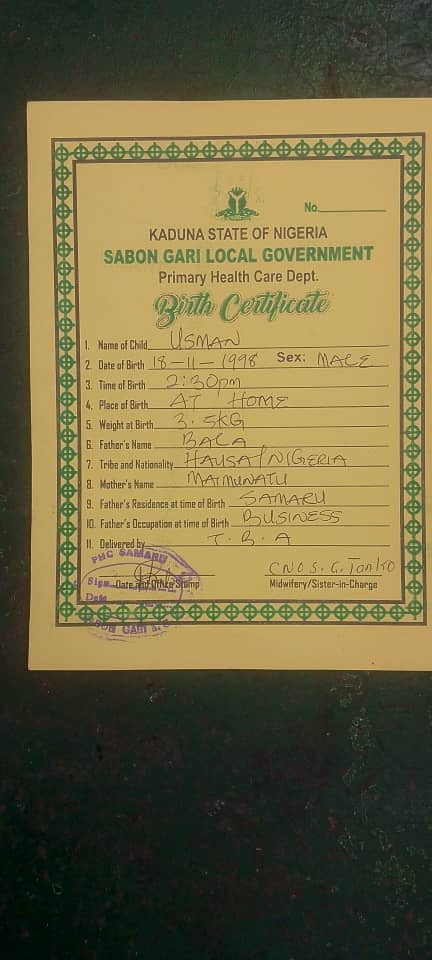 No.
KADUNA STATE OF NIGERIA
SABON GARI LOCAL GOVERNMENT
Primary Health Care Dept.
Birth Certificate
1. Name of Child USMAN
2. Date of Birth 18-11-1998 Sex: MALE
3. Time of Birth 2:30pm
4. Place of Birth AT HOME
5. Weight at Birth 3.5KG
6. Father's Name BALA
7. Tribe and Nationality HAUSA/NIGERIA
8. Mother's Name MAIMUNATU
9. Father's Residence at time of Birth SAMARU
10. Father's Occupation at time of Birth BUSINESS
11. Delivered by T.B.A
PHC SAMARU
Sign
Date and Office Stamp
CNO S.G. Tanko
Midwifery/Sister-in-Charge
Date
GARI